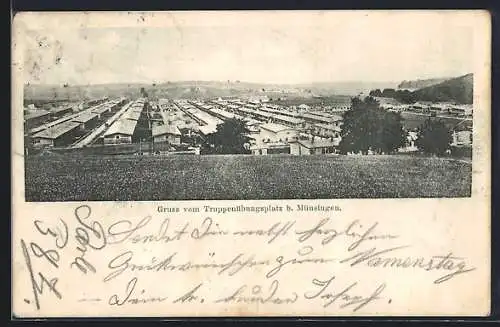 Gruss vom Truppenübungsplatz b. Münsingen.
Sendet Dir nebst herzlichen
Glückwünschen zum Namenstag
Dein tr. Bruder Joseph.